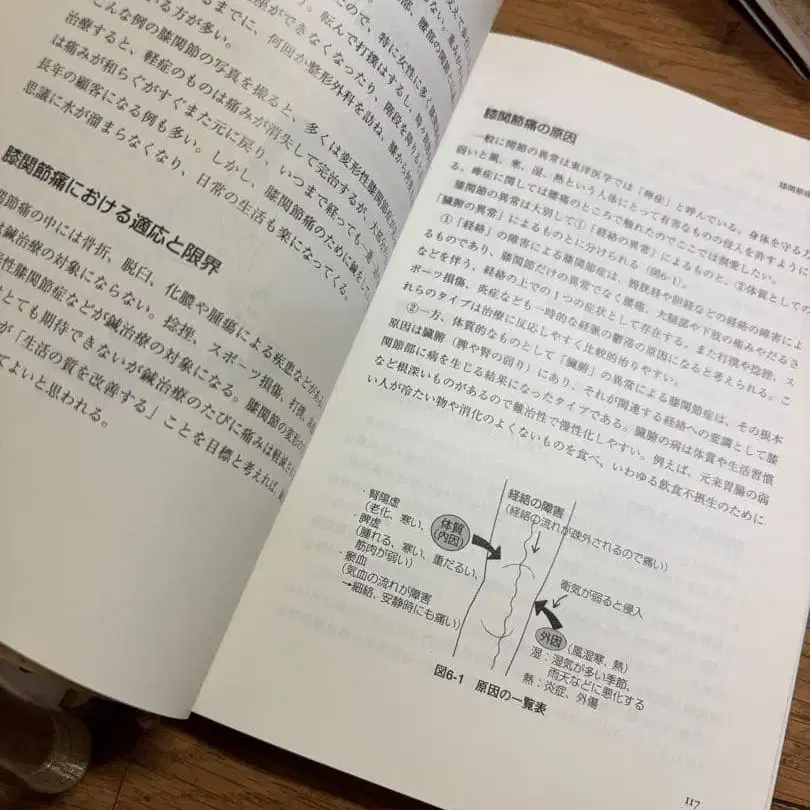 んな例の膝関節の写真を撮ると、多くは変形性膝関節
治療すると、軽症のものは痛みが消失して完治するが、大
は痛みが和らぐがすぐまた元に戻り、いつまで経っても
長年の顧客になる例も多い。しかし、膝関節痛のために鍼を
思議に水が溜まらなくなり、日常の生活も楽になってくる。
膝関節痛における適応と限界
関節痛の中には骨折、脱臼、化膿や腫瘍による疾患などが
は鍼治療の対象にならない。捻挫、スポーツ損傷、打撲、
性膝関節症などが鍼治療の対象になる。膝関節の変形の
とても期待できないが鍼治療のたびに痛みは軽減さ
が「生活の質を改善する」ことを目標と考えれば、
てよいと思われる。
膝関節
膝関節痛の原因
一般に関節の異常は東洋医学では「痺症」と呼んでいる。身体を守る力
弱いと風、寒、湿、熱という人体にとって有害なものの侵入を許すように
る。痺症に関しては腰痛のところで触れたのでここでは割愛したい。
膝関節の異常は大別して①「経絡の異常」によるものと、②体質として
「臓腑の異常」によるものとに分けられる（図6-1）。
①「経絡」の障害による膝関節症は、膀胱経や胆経などの経絡の障害によ
るものであり、膝関節だけの異常でなく腰痛、大腿部や下肢の痛みやだるさ
などを伴う、経絡の上での1つの症状として存在する。また打撲や捻挫、ス
ポーツ損傷、炎症なども一時的な経脈の鬱滞の原因になると考えられる。こ
れらのタイプは治療に反応しやすく比較的治りやすい。
②一方、体質的なものとして「臓腑」の異常による膝関節症は、その根本
原因は臓腑（脾や腎の弱り）にあり、それが関連する経絡への変調として膝
関節部に病を生じる結果になったタイプである。臓腑の病は体質や生活習慣
など根深いものがあるので難治性で慢性化しやすい。例えば、元来胃腸の弱
い人が冷たい物や消化のよくないものを食べ、いわゆる飲食不摂生のために
・腎陽虚
（老化、寒い、
・脾虚
（腫れる、寒い、重だるい、
筋肉が弱い）
・瘀血
（気血の流れが障害
→細絡、安静時にも痛い）
体質
（内因）
経絡の障害
（経絡の流れが疎外されるので痛い）
衛気が弱ると侵入
外因（風湿寒、熱）
湿：湿気が多い季節、
雨天などに悪化する
熱：炎症、外傷
図6-1 原因の一覧表
117